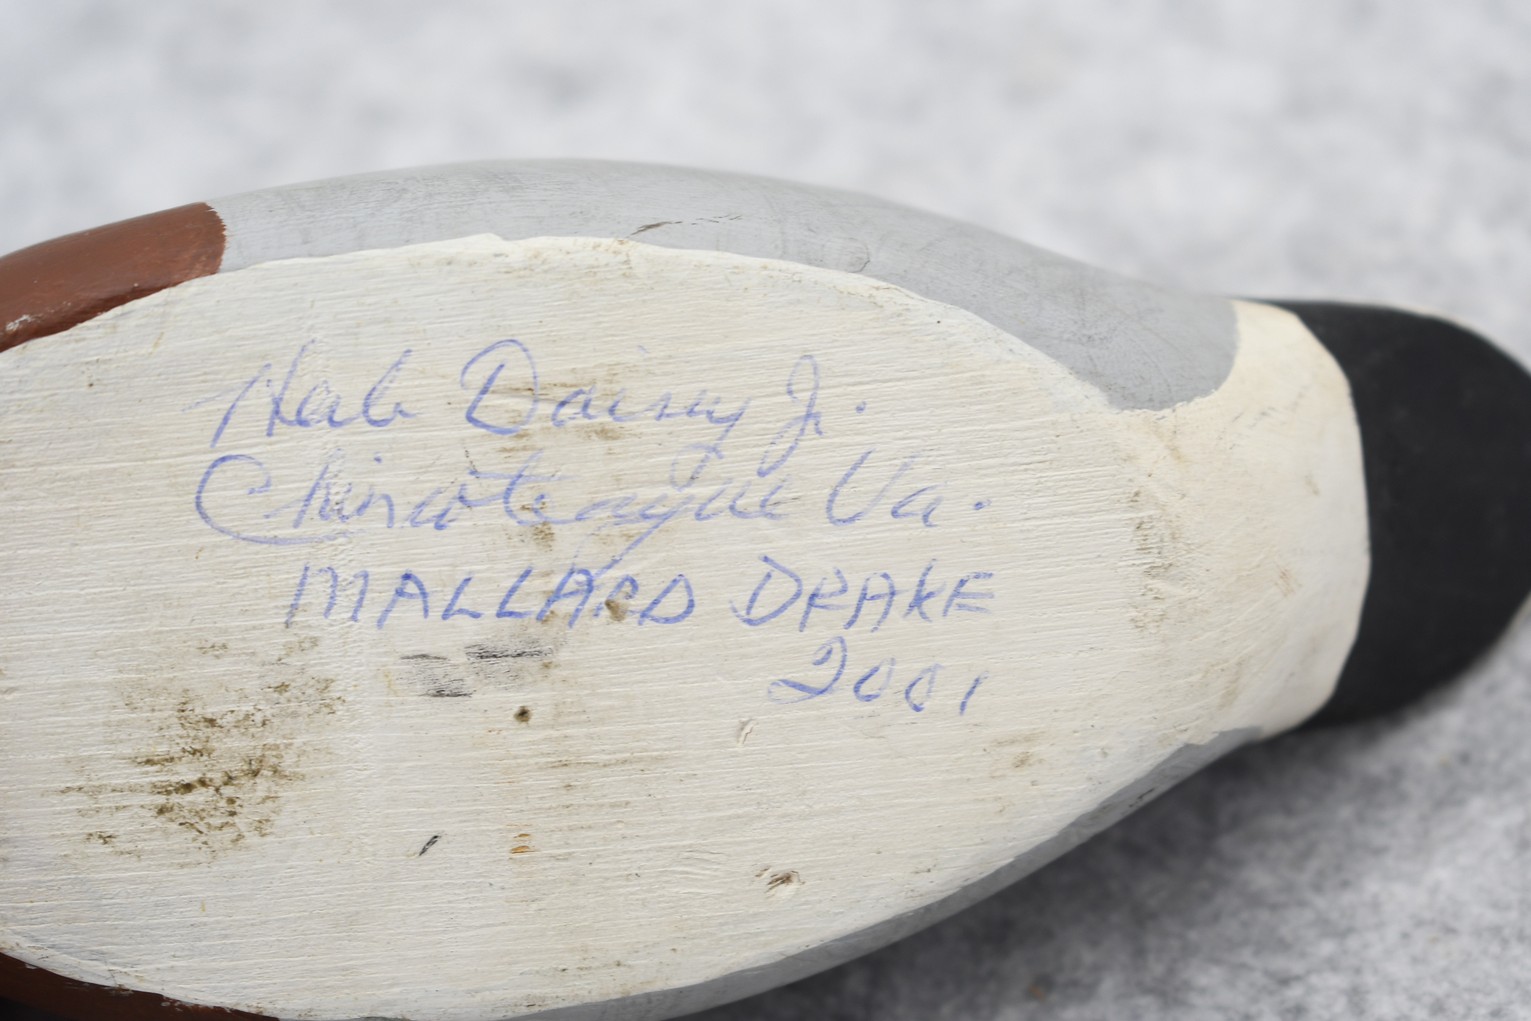 Herb Daisey Jr.
Chincoteague Va.
MALLARD DRAKE
2001